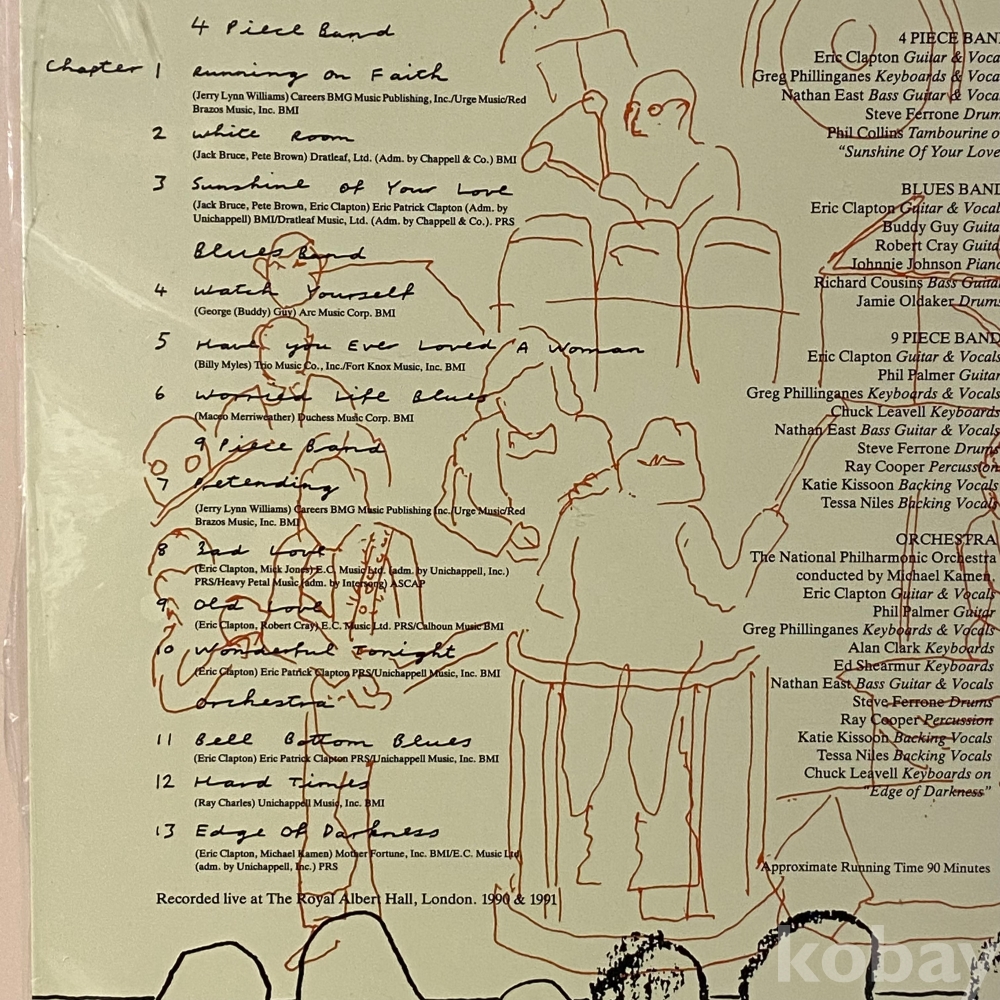 4 Piece Band
Chapter 1 Running on Faith
(Jerry Lynn Williams) Careers BMG Music Publishing, Inc./Urge Music/Red
Brazos Music, Inc. BMI
2 White Room
(Jack Bruce, Pete Brown) Dratleaf, Ltd. (Adm. by Chappell & Co.) BMI
3 Sunshine of Your Love
(Jack Bruce, Pete Brown, Eric Clapton) Eric Patrick Clapton (Adm. by
Unichappell) BMI/Dratleaf Music, Ltd. (Adm. by Chappell & Co.). PRS
Blues Band
4 Watch Yourself
(George (Buddy) Guy) Arc Music Corp. BMI
5 Have you Ever Loved A Woman
(Billy Myles) Trio Music Co., Inc./Fort Knox Music, Inc. BMI
6 Worried Life Blues
(Maceo Merriweather) Duchess Music Corp. BMI
9 Piece Band
7 Pretending
(Jerry Lynn Williams) Careers BMG Music Publishing Inc./Urge Music/Red
Brazos Music, Inc. BMI
8 Bad Love
(Eric Clapton, Mick Jones) E.C. Music Ltd. (adm. by Unichappell, Inc.)
PRS/Heavy Petal Music (adm. by Intersong) ASCAP
9 Old Love
(Eric Clapton, Robert Cray) E.C. Music Ltd. PRS/Calhoun Music BMI
10 Wonderful Tonight
(Eric Clapton) Eric Patrick Clapton PRS/Unichappell Music, Inc. BMI
Orchestra
11 Bell Bottom Blues
(Eric Clapton) Eric Patrick Clapton PRS/Unichappell Music, Inc. BMI
12 Hard Times
(Ray Charles) Unichappell Music, Inc. BMI
13 Edge of Darkness
(Eric Clapton, Michael Kamen) Mother Fortune, Inc. BMI/E.C. Music Ltd.
(adm. by Unichappell, Inc.) PRS
Recorded live at The Royal Albert Hall, London. 1990 & 1991
4 PIECE BAND
Eric Clapton Guitar & Voca
Greg Phillinganes Keyboards & Voca
Nathan East Bass Guitar & Voca
Steve Ferrone Drum
Phil Collins Tambourine o
"Sunshine Of Your Love
BLUES BAND
Eric Clapton Guitar & Vocal
Buddy Guy Guita
Robert Cray Guita
Johnnie Johnson Piano
Richard Cousins Bass Guita
Jamie Oldaker Drums
9 PIECE BAND
Eric Clapton Guitar & Vocals
Phil Palmer Guitar
Greg Phillinganes Keyboards & Vocals
Chuck Leavell Keyboards
Nathan East Bass Guitar & Vocals
Steve Ferrone Drums
Ray Cooper Percussion
Katie Kissoon Backing Vocals
Tessa Niles Backing Vocals
ORCHESTRA
The National Philharmonic Orchestra
conducted by Michael Kamen,
Eric Clapton Guitar & Vocals
Phil Palmer Guitar
Greg Phillinganes Keyboards & Vocals
Alan Clark Keyboards
Ed Shearmur Keyboards
Nathan East Bass Guitar & Vocals
Steve Ferrone Drums
Ray Cooper Percussion
Katie Kissoon Backing Vocals
Tessa Niles Backing Vocals
Chuck Leavell Keyboards on
"Edge of Darkness"
Approximate Running Time 90 Minutes
kobay